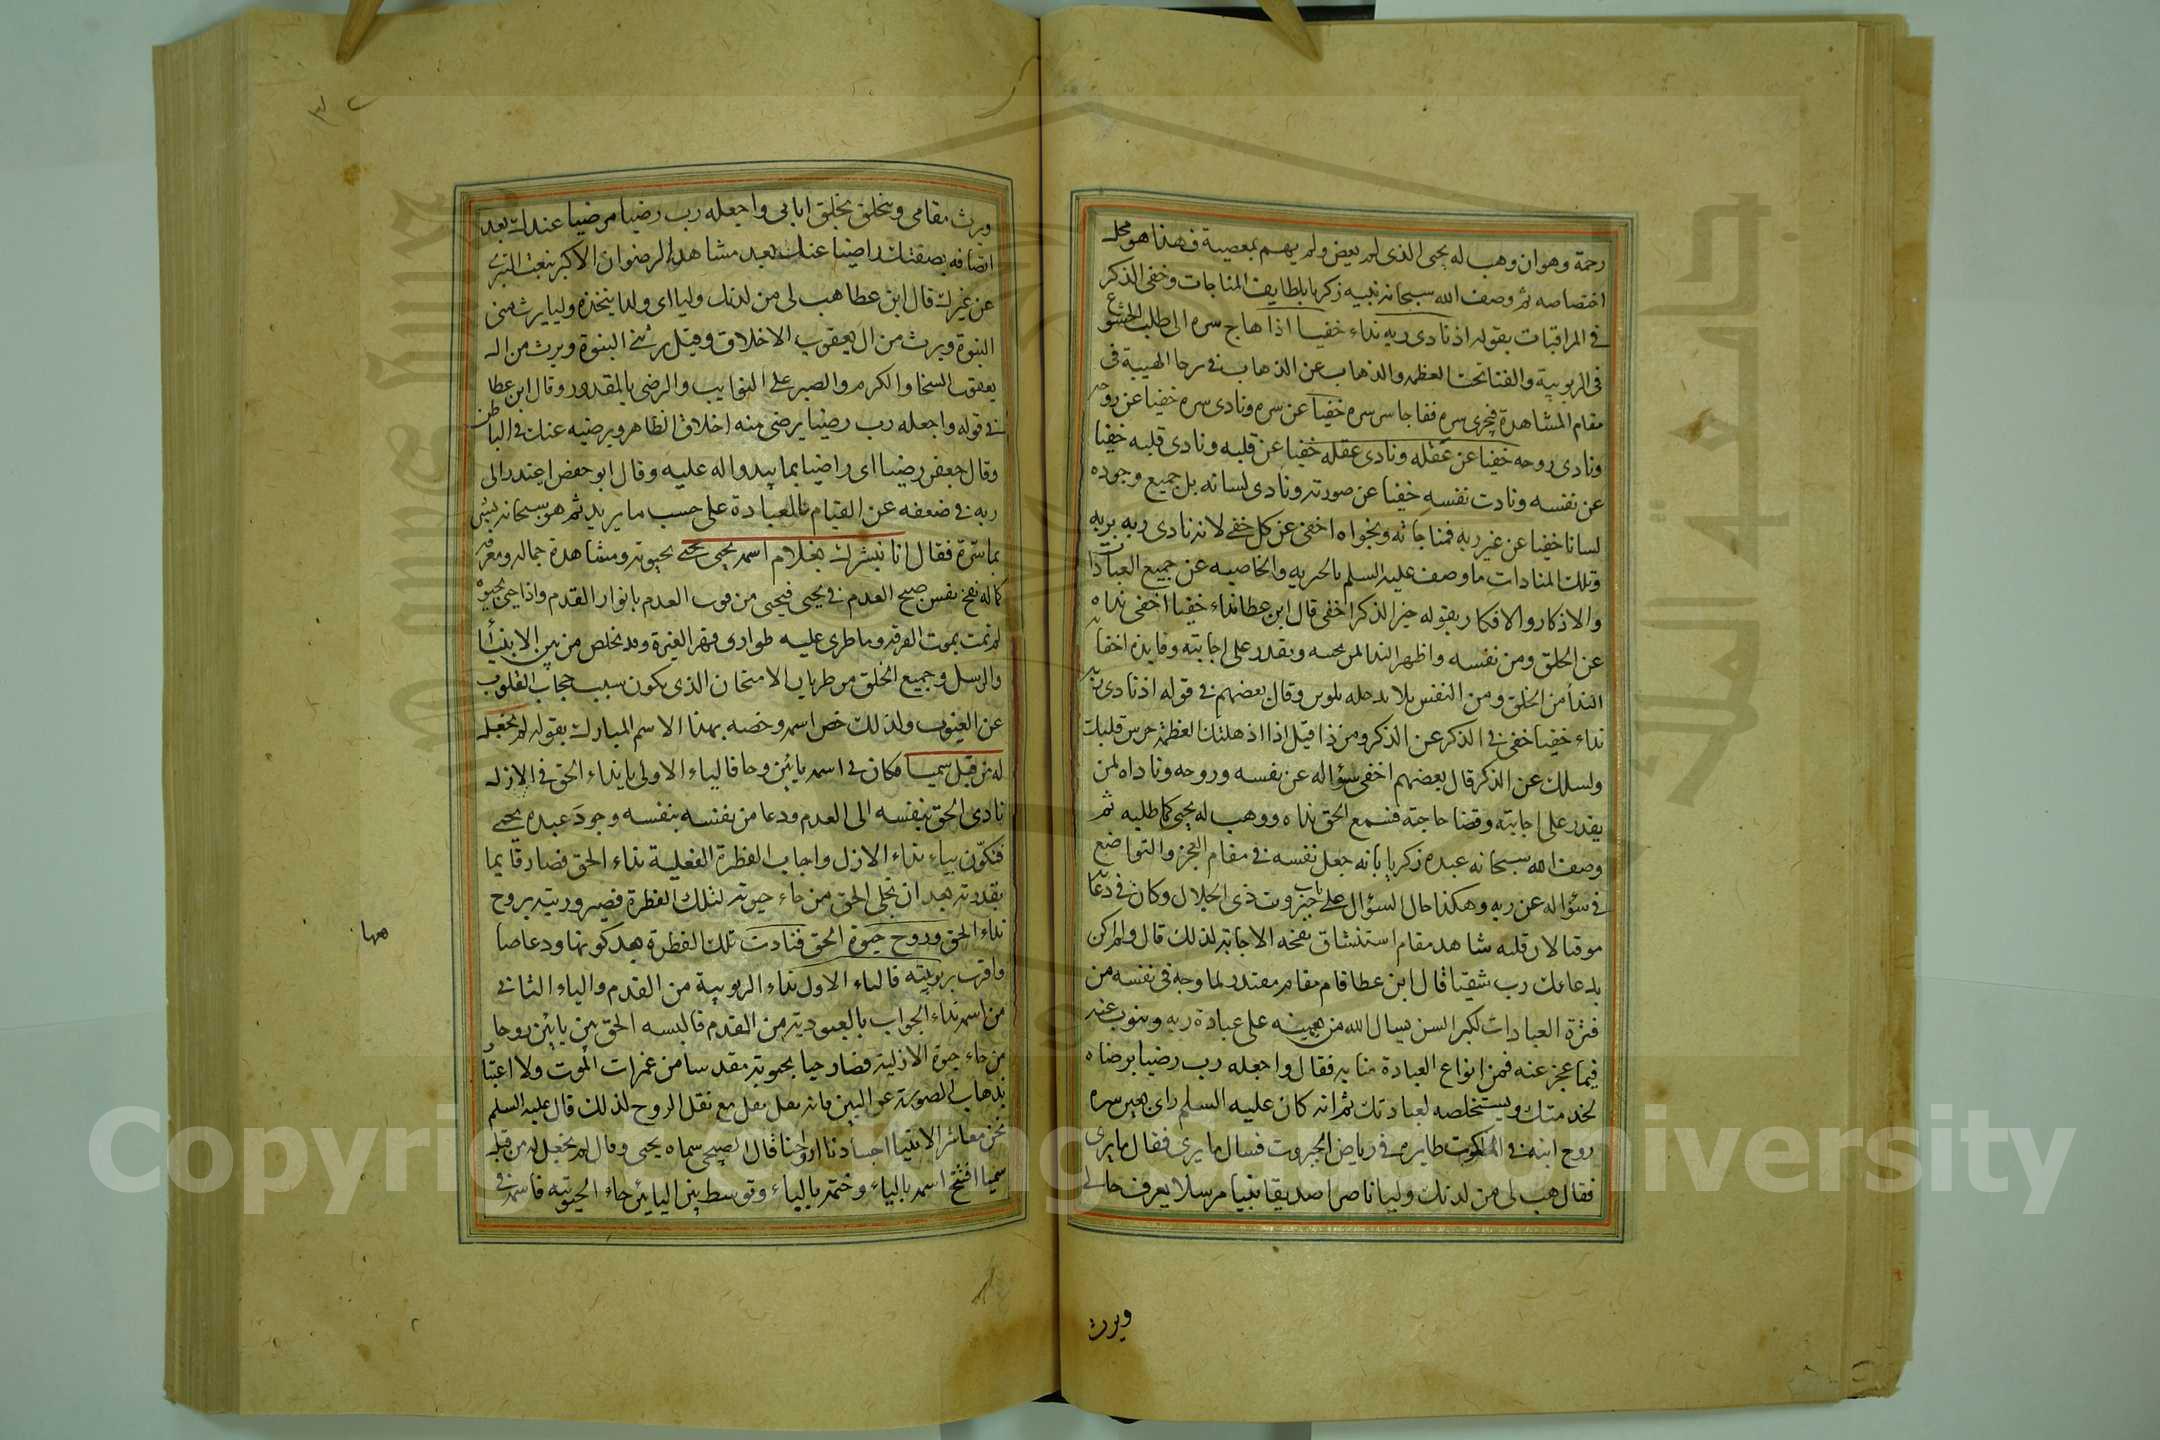 رحمة وهوان وهب له يحيى الذى لم يعض ولم يهم بمعصية فهذا هو محل
اختصاصه ثم وصف الله سبحانه نبيه زكريا بلطايف المناجات وخفى الذكر
فى المراقبات بقوله اذ نادى ربه نداء خفيا اذا هاج سره الى طلب الخشوع
فى الربوبية والفنا تحت العظمة والذهاب عن الذهاب فى رجا الهيبة فى
مقام المشاهدة فيجرى سره ففاجا سر سره خفيا عن سره ونادى سره خفيا عن روحه
ونادى روحه خفيا عن عقله ونادى عقله خفيا عن قلبه ونادى قلبه خفيا
عن نفسه ونادت نفسه خفيا عن صورته ونادى لسانه بل جميع وجوده
لسانا خفيا عن غير ربه فمناجاته ونجواه اخفى عن كل خفى لانه نادى ربه بربه
وتلك المنادات ما وصف عليه السلم بالحريه والخاصيه عن جميع العبادات
والاذكار والافكار بقوله خير الذكر اخفى قال ابن عطا نداء خفيا اخفى نداه
عن الخلق ومن نفسه واظهر الندا لمن يجيبه ويقدر على اجابته وفايدة اخفا
الندأ من الخلق ومن النفس يلا يدخله تلوين وقال بعضهم فى قوله اذ نادى ربه
نداء خفيا خفى فى الذكر عن الذكر ومن ذا قيل اذا اذهلتك العظمة خرس قلبك
ولسلك عن الذكر قال بعضهم اخفى سؤاله عن نفسه وروحه وناداه لمن
يقدر على اجابته وقضا حاجته فسمع الحق نداه ووهب له يحيى كما طلبه ثم
وصف الله سبحانه عبده زكريا بانه جعل نفسه فى مقام العجز والتواضع
فى سؤاله عن ربه وهكذا حال السؤال على باب جبروت ذى الجلال وكان فى دعا
موقنا لان قلبه شاهد مقام استنشاق نفحة الاجابة لذلك قال ولم اكن
بدعائك رب شقيا قال ابن عطا قام مقام معتذر لما وجد فى نفسه من
فترة العبادات لكبر السن يسال الله من يعينه على عبادة ربه وينوب عنه
فيما عجز عنه فمن انواع العبادة منابه فقال واجعله رب رضيا برضاه
لخدمتك ويستخلصه لعبادتك ثم انه كان عليه السلم راى بعين سره
روح ابنه فى الملكوت طايره فى رياض الجبروت فسال ما يرى فقال ما يرى
فقال هب لى من لدنك وليا ناصرا صديقا نبيا مرسلا يعرف حالى
ويرث
ويرث مقامى ويتخلق بخلق ابائى واجعله رب رضيا مرضيا عندك بعد
اتصافه بصفتك راضيا عنك بعد مشاهدة الرضوان الاكبر بنعت التبرى
عن غيرك قال ابن عطا هب لى من لدنك وليا اى ولدا يتخذه وليا يرث منى
النبوة ويرث من ال يعقوب الاخلاق وقيل يرثنى النبوة ويرث من ال
يعقوب السخا والكرم والصبر على النوايب والرضى بالمقدور وقال ابن عطا
فى قوله واجعله رب رضيا يرضى منه اخلاق الظاهر ويرضيه عنك فى الباطن
وقال جعفر رضيا اى راضيا بما يبدوا له عليه وقال ابو حفص اعتذر الى
ربه فى ضعفه عن القيام بالعبادة على حسب ما يريد ثم هو سبحانه بشر
بما سره فقال انا نبشرك بغلام اسمه يحيى يحيى بحيوته ومشاهدة جماله ومعرفة
كماله نفخ نفس صبح القدم فى يحيى فيحيى من موت العدم بانوار القدم واذا حيى بحيوة
لم تمت بموت الفرقه وما طرى عليه طوارق قهر الغيرة وقد تخلص من بين الانبيأ
والرسل وجميع الخلق من طريان الامتحان الذى يكون سبب حجاب القلوب
عن الغيوب ولذلك خص اسمه وخصه بهذا الاسم المبارك بقوله لم نجعل
له من قبل سميا فكان فى اسمه يايين وحا فالياء الاولى يا نداء الحق فى الازل
نادى الحق بنفسه الى العدم ودعا من نفسه بنفسه وجود عبده يحيى
فتكون بياء نداء الازل واجاب الفطرة الفعلية نداء الحق فصار قايما
بقدرته بعد ان تجلى الحق من حاء حيوته لتلك الفطرة فيصير وريته بروح
نداء الحق وروح حيوة الحق فنادت تلك الفطرة بعد كونها ودعا صا
مها
واقرت بربوبيته فالياء الاول نداء الربوبية من القدم والياء الثانى
من اسمه نداء الجواب بالعبودية من القدم فالبسه الحق بين يايين روحا
من حاء حيوة الازلية فصار حيا بحيوته مقدسا من غمرات الموت ولا اعتبار
بذهاب الصورة عن البين فانه نقل نقل مع نقل الروح لذلك قال عليه السلم
نحن معاشر الانبيا اجسادنا ارواحنا قال سماه يحيى وقال لم نجعل له من قبل
سميا افتتح اسمه بالياء وختمه بالياء وتوسط بين اليايين حاء الحيوتية فاسمه فى
Copyright © King Saud University
جامعة الملك سعود
King Saud University